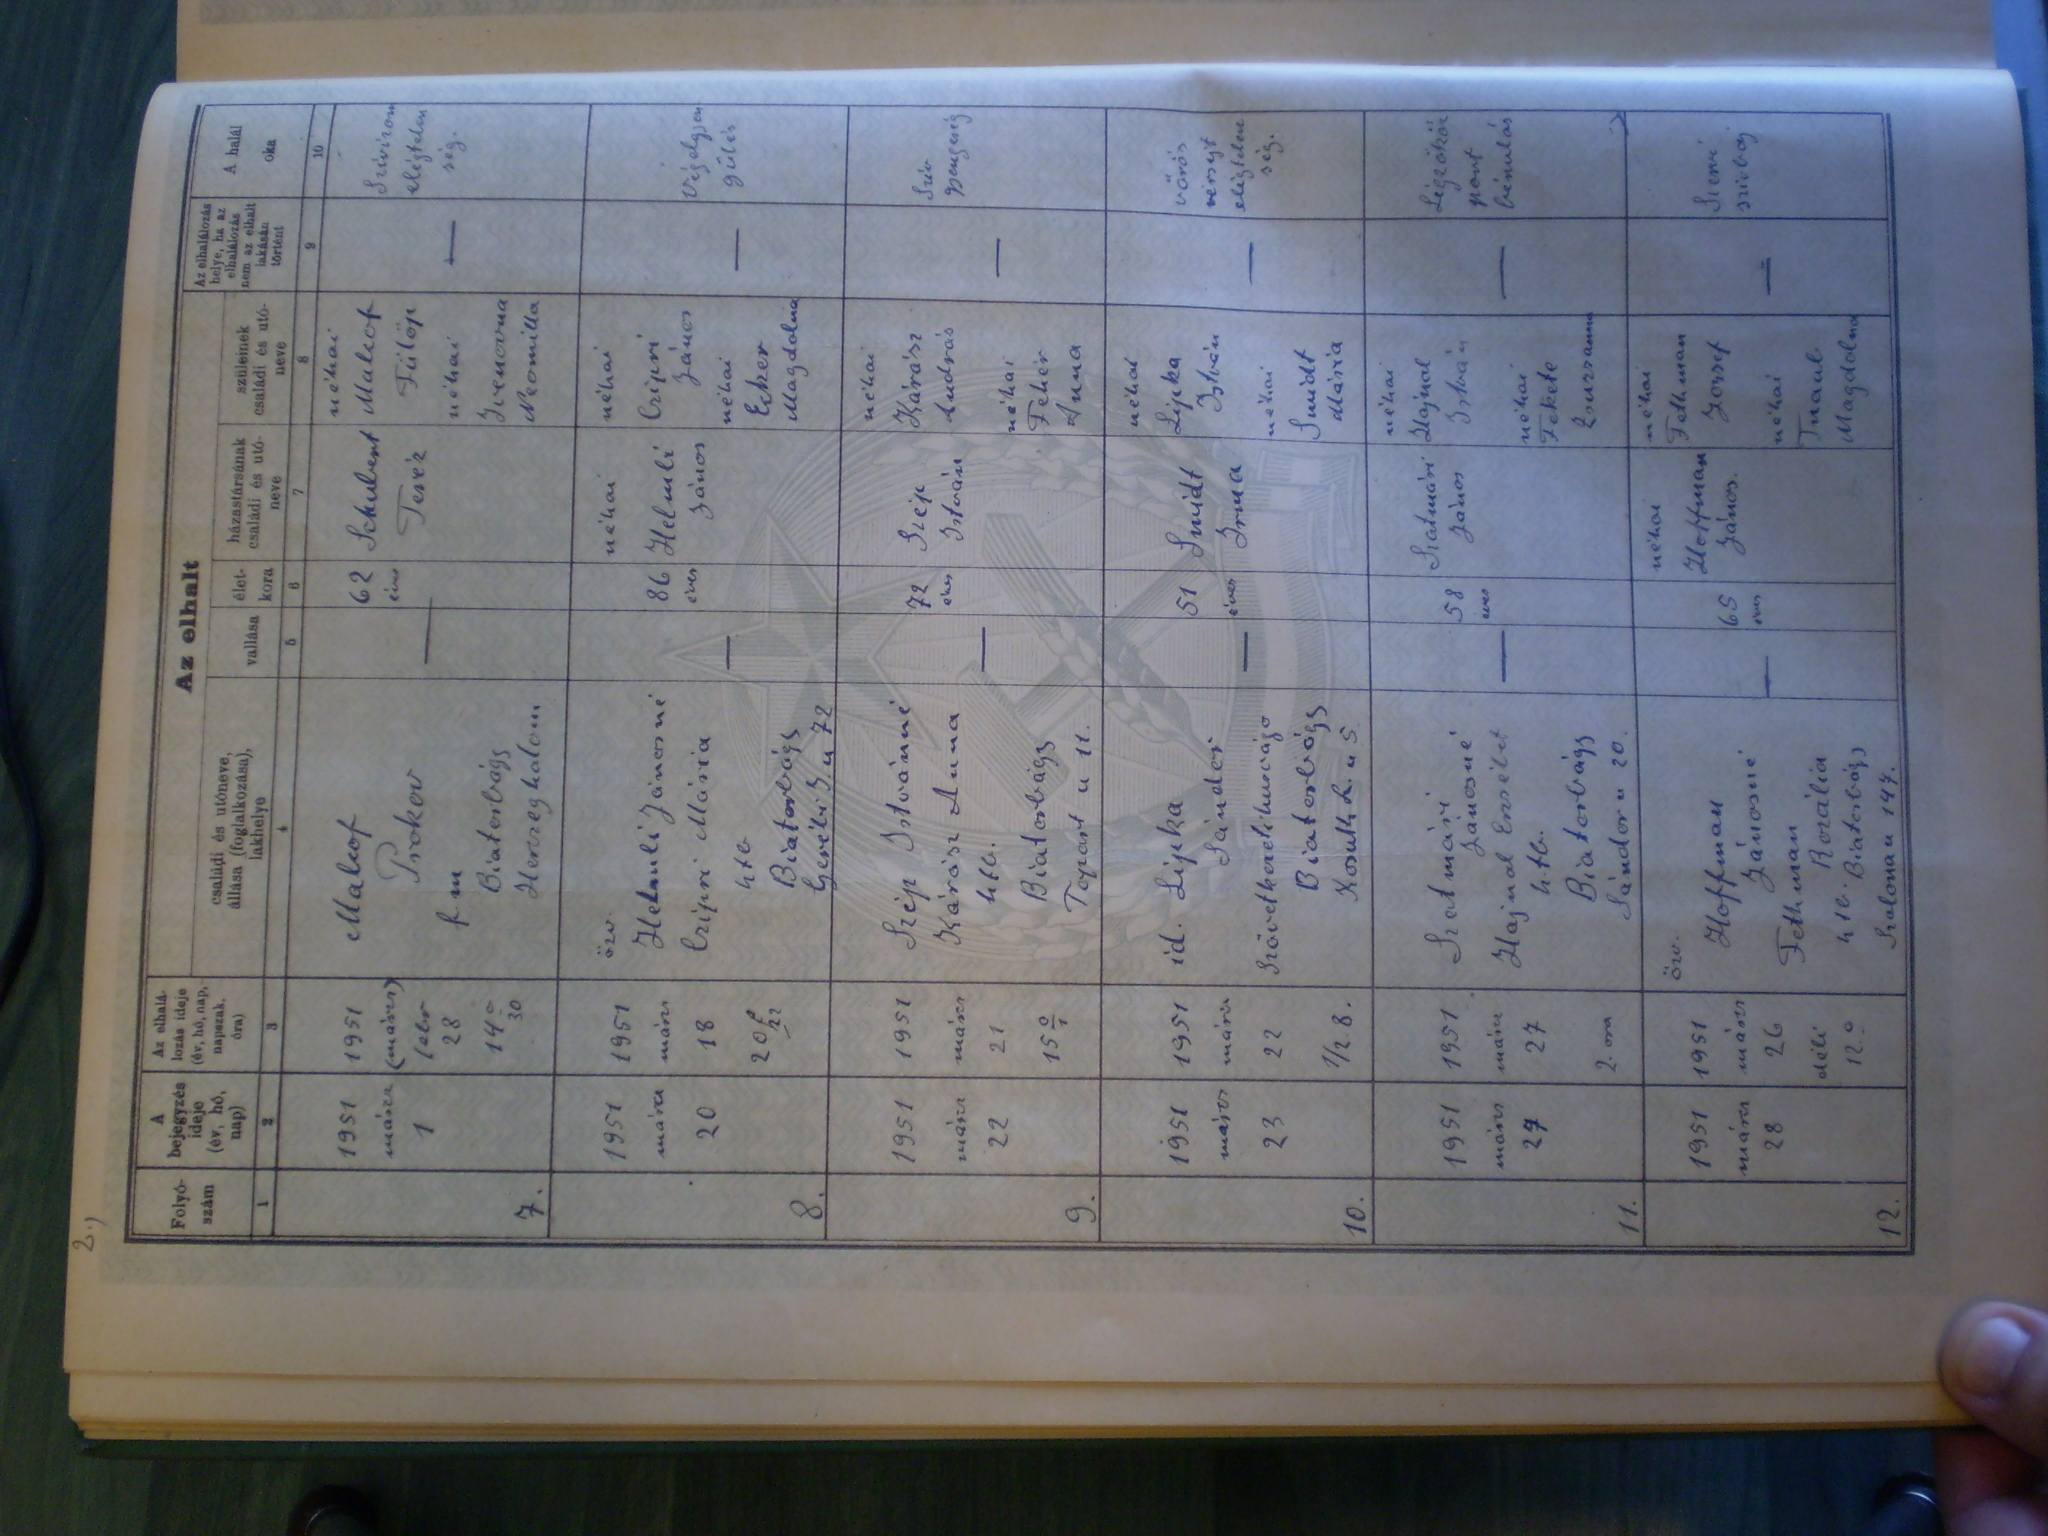 2.)
Az elhalt
Folyó-
szám
A
bejegyzés
ideje
(év, hó,
nap)
Az elhalá-
lozás ideje
(év, hó, nap,
napszak,
óra)
családi és utóneve,
állása (foglalkozása),
lakhelye
vallása
élet-
kora
házastársának
családi és utó-
neve
szüleinek
családi és utó-
neve
Az elhalálozás
helye, ha az
elhalálozás
nem az elhalt
lakásán
történt
A halál
oka
1 2 3 4 5 6 7 8 9 10
7.
1951
márc
1
1951
(márc)
febr
28
14 30
Malcof
Prokop
f-m
Biatorbágy
Herceghalom
—
62
éves
Schubert
Teréz
néhai
Malcof
Fülöp
néhai
Neomilla
—
Szívizom
elégtelen
ség.
8.
1951
márc
20
1951
márc
18
20
özv.
Helmli Jánosné
Czipri Mária
htb
Biatorbágy
u 72
—
86
éves
néhai
Helmli
János
néhai
Czipri
János
néhai
Ecker
Magdolna
—
Végelgyen
gülés
9.
1951
márc
22
1951
márc
21
15
Szép Istvánné
Kárász Anna
htb.
Biatorbágy
u 11.
—
72
éves
Szép
István
néhai
Kárász
András
néhai
Fehér
Anna
—
Szív
gyengeség
10.
1951
márc
23
1951
márc
22
1/2 8.
id. Lipka
Sándor
Biatorbágy
Kosuth L. u 5.
—
51
éves
Smidt
Irma
néhai
Lipka
István
néhai
Smidt
Mária
—
vörös
vérsejt
elégtelen
ség.
11.
1951
márc
27
1951
márc
27
2. óra
Szatmári
Jánosné
Hajnal Erzsébet
htb.
Biatorbágy
Sándor u 20.
—
58
éves
Szatmári
János
néhai
Hajnal
István
néhai
Fekete
Zsuzsanna
—
Légzőköz
pont
bénulás
12.
1951
márc
28
1951
márc
26
déli
12.
özv.
Hoffman
Jánosné
Fethman
Rozália
htb. Biatorbágy
u 147.
—
65
éves
néhai
Hoffman
János.
néhai
Fethman
József
néhai
Traul
Magdolna
—
Szervi
szívbaj